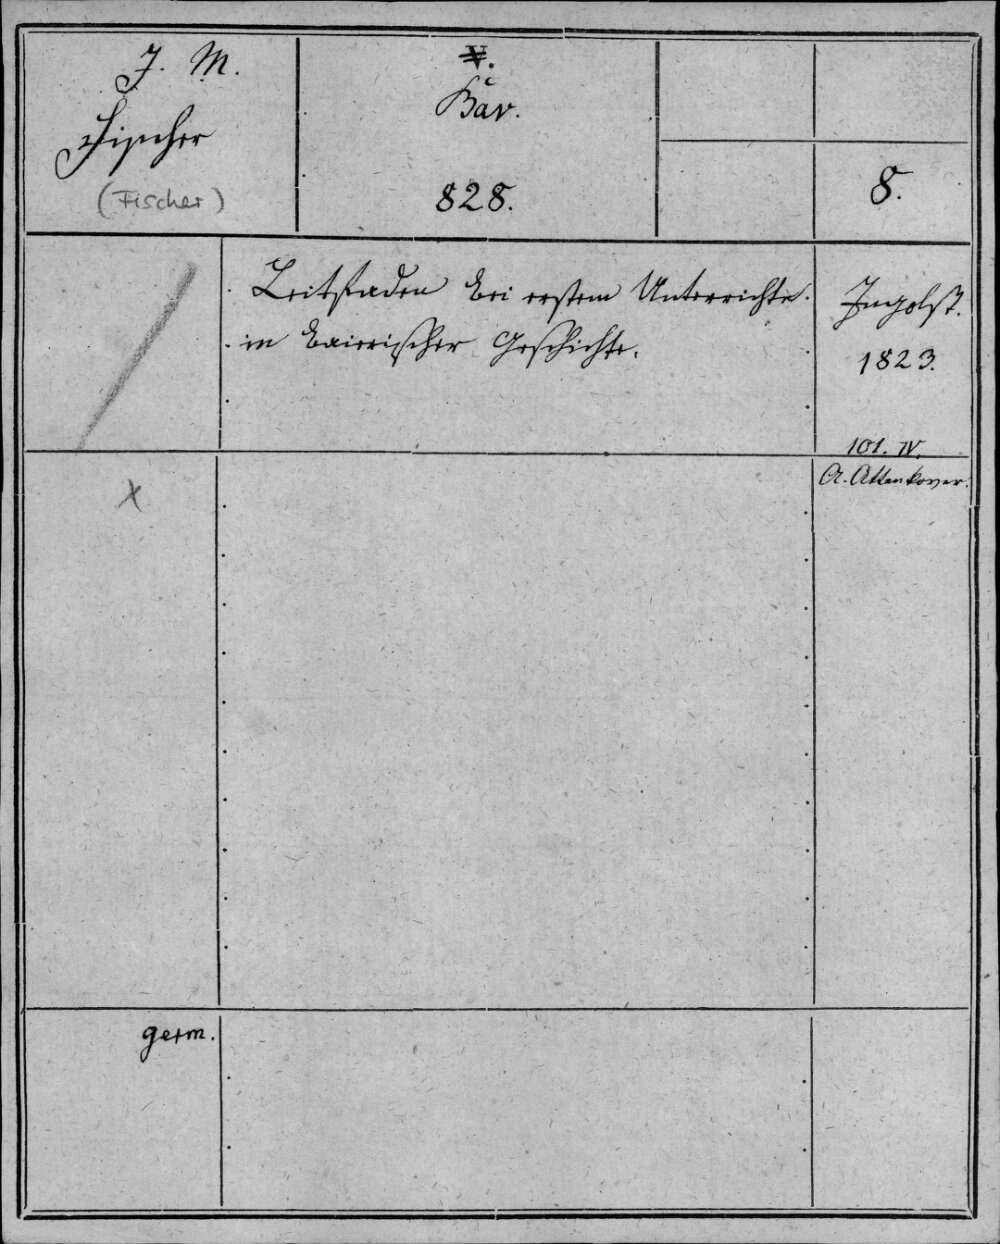 J. M.
Fischer
(Fischer)
V.
Bav.
828.
8.
Leitfaden bei erstem Unterrichte
in baierischer Geschichte.
Ingolst.
1823.
101. IV.
A. Attenkover.
X
germ.